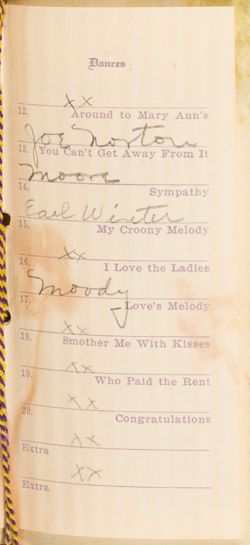 Dances
xx
12. Around to Mary Ann's
Joe Norton
13. You Can't Get Away From It
Moore
14. Sympathy
Earl Winter
15. My Croony Melody
xx
16. I Love the Ladies
Moody
17. Love's Melody
xx
18. Smother Me With Kisses
xx
19. Who Paid the Rent
xx
20. Congratulations
xx
Extra
xx
Extra